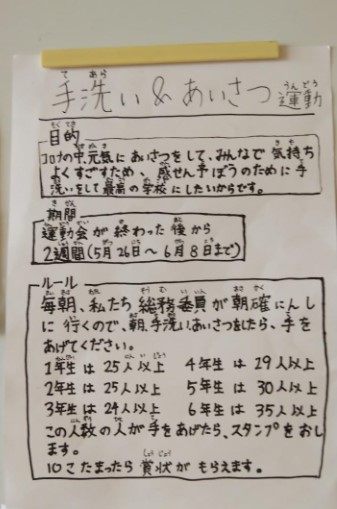 手洗い&あいさつ運動
目的
コロナの中、元気にあいさつをして、みんなで気持ち
よくすごすため、感せん予ぼうのために手
洗いをして最高の学校にしたいからです。
期間
運動会が終わった後から
2週間(5月26日～6月8日まで)
ルール
毎朝、私たち総務委員が朝確にんし
に行くので、朝、手洗いあいさつをしたら、手を
あげてください。
1年生は25人以上 4年生は29人以上
2年生は25人以上 5年生は30人以上
3年生は24人以上 6年生は35人以上
この人数の人が手をあげたら、スタンプをおし
ます。
10こたまったら賞状がもらえます。